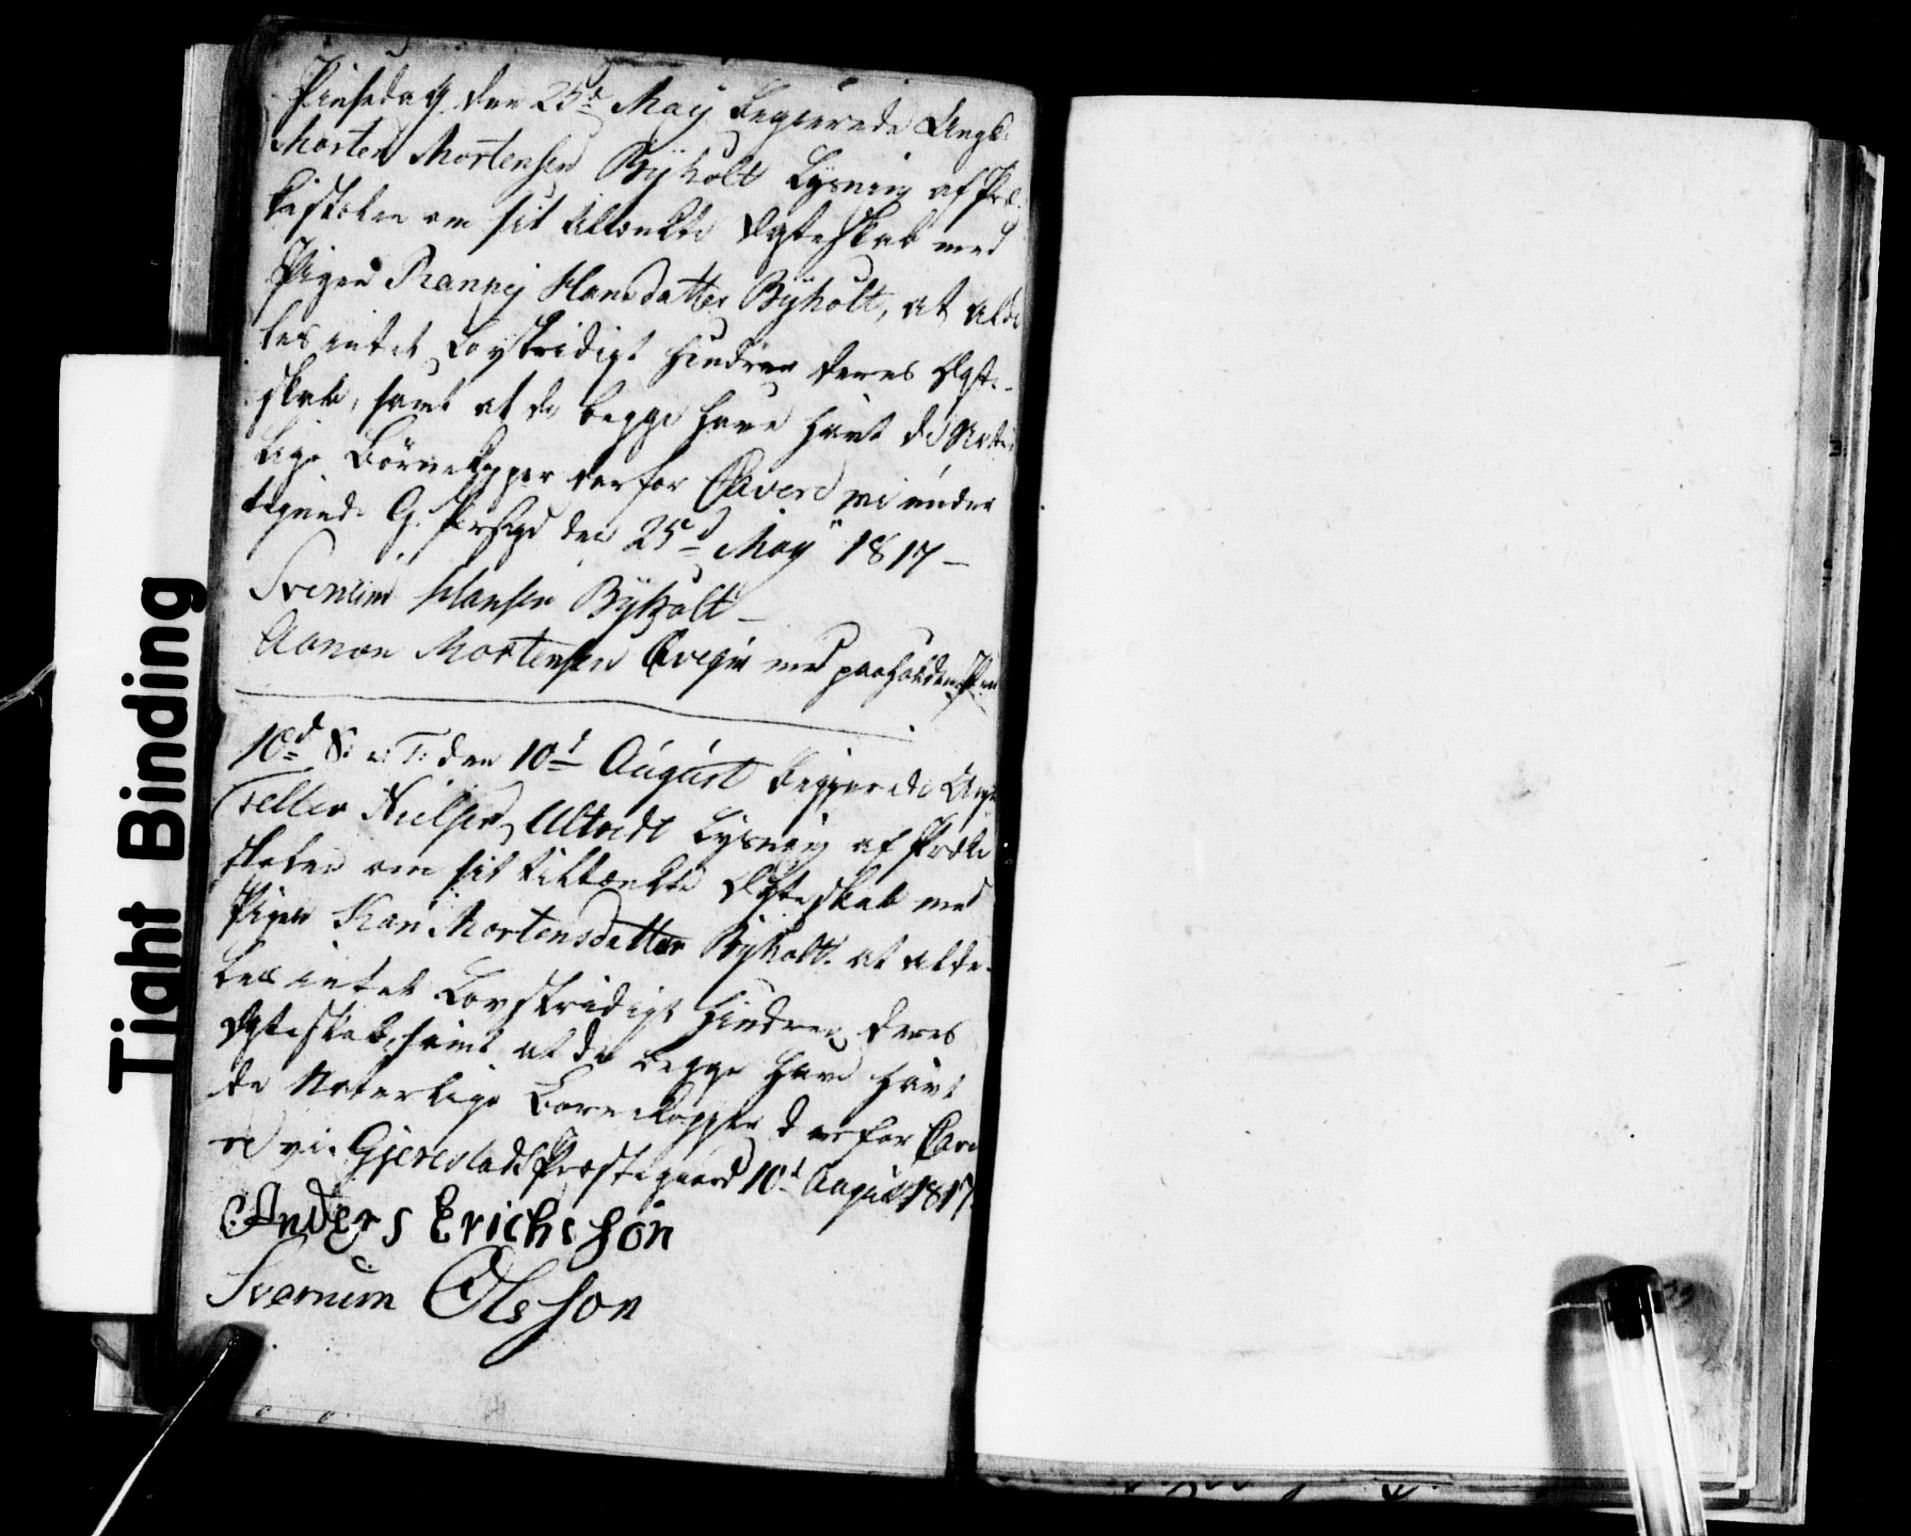 Pinsedag den 25d May begierede Ungk:
Morten Mortensen Byholt Lysning af Præ-
kestolen om sit tiltænkte Ægteskab med
Pigen Ranney Hansdatter Byholt, at alde
les intet Lovstridigt hindrer deres Ægte-
skab, samt at de begge have havt de Natur
lige Børnekopper derfor Cavere vi under
tegnede G. Præstgd den 25d May 1817 –
Svenum Hansen Byholt –
Aanon Mortensen med paaholden Pen
10d S: e: T: den 10d August begjærede Ungk
Tellev Nielsen Ultvedt Lysning af Præke
stolen om sit tiltænkte Ægteskab med
Pigen Kari Mortensdatter Byholt. at alde-
les intet Lovstridigt hindrer deres
Ægteskab, samt at de begge have havt
de Naturlige Børnekopper derfor Cave
re vi. Gjerestads Præstegaard 10d August 1817
Anders Erichsson
Svennum Olsson
Tight Binding